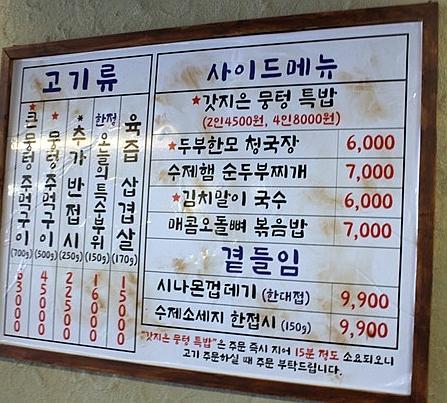 고기류
★큰 뭉텅 주먹구이 (700g) 63000
★뭉텅 주먹구이 (500g) 45000
*추가 반접시 (250g) 22500
한정 오늘의 특수부위 (150g) 16000
육즙 삼겹살 (170g) 15000
사이드메뉴
★갓지은 뭉텅 특밥
(2인4500원, 4인8000원)
★두부한모 청국장 6,000
수제햄 순두부찌개 7,000
★김치말이 국수 6,000
매콤오돌뼈 볶음밥 7,000
곁들임
시나몬껍데기 (한대접) 9,900
수제소세지 한접시 (150g) 9,900
"갓지은 뭉텅 특밥"은 주문 즉시 지어 15분 정도 소요되오니
고기 주문하실 때 주문 부탁드립니다.